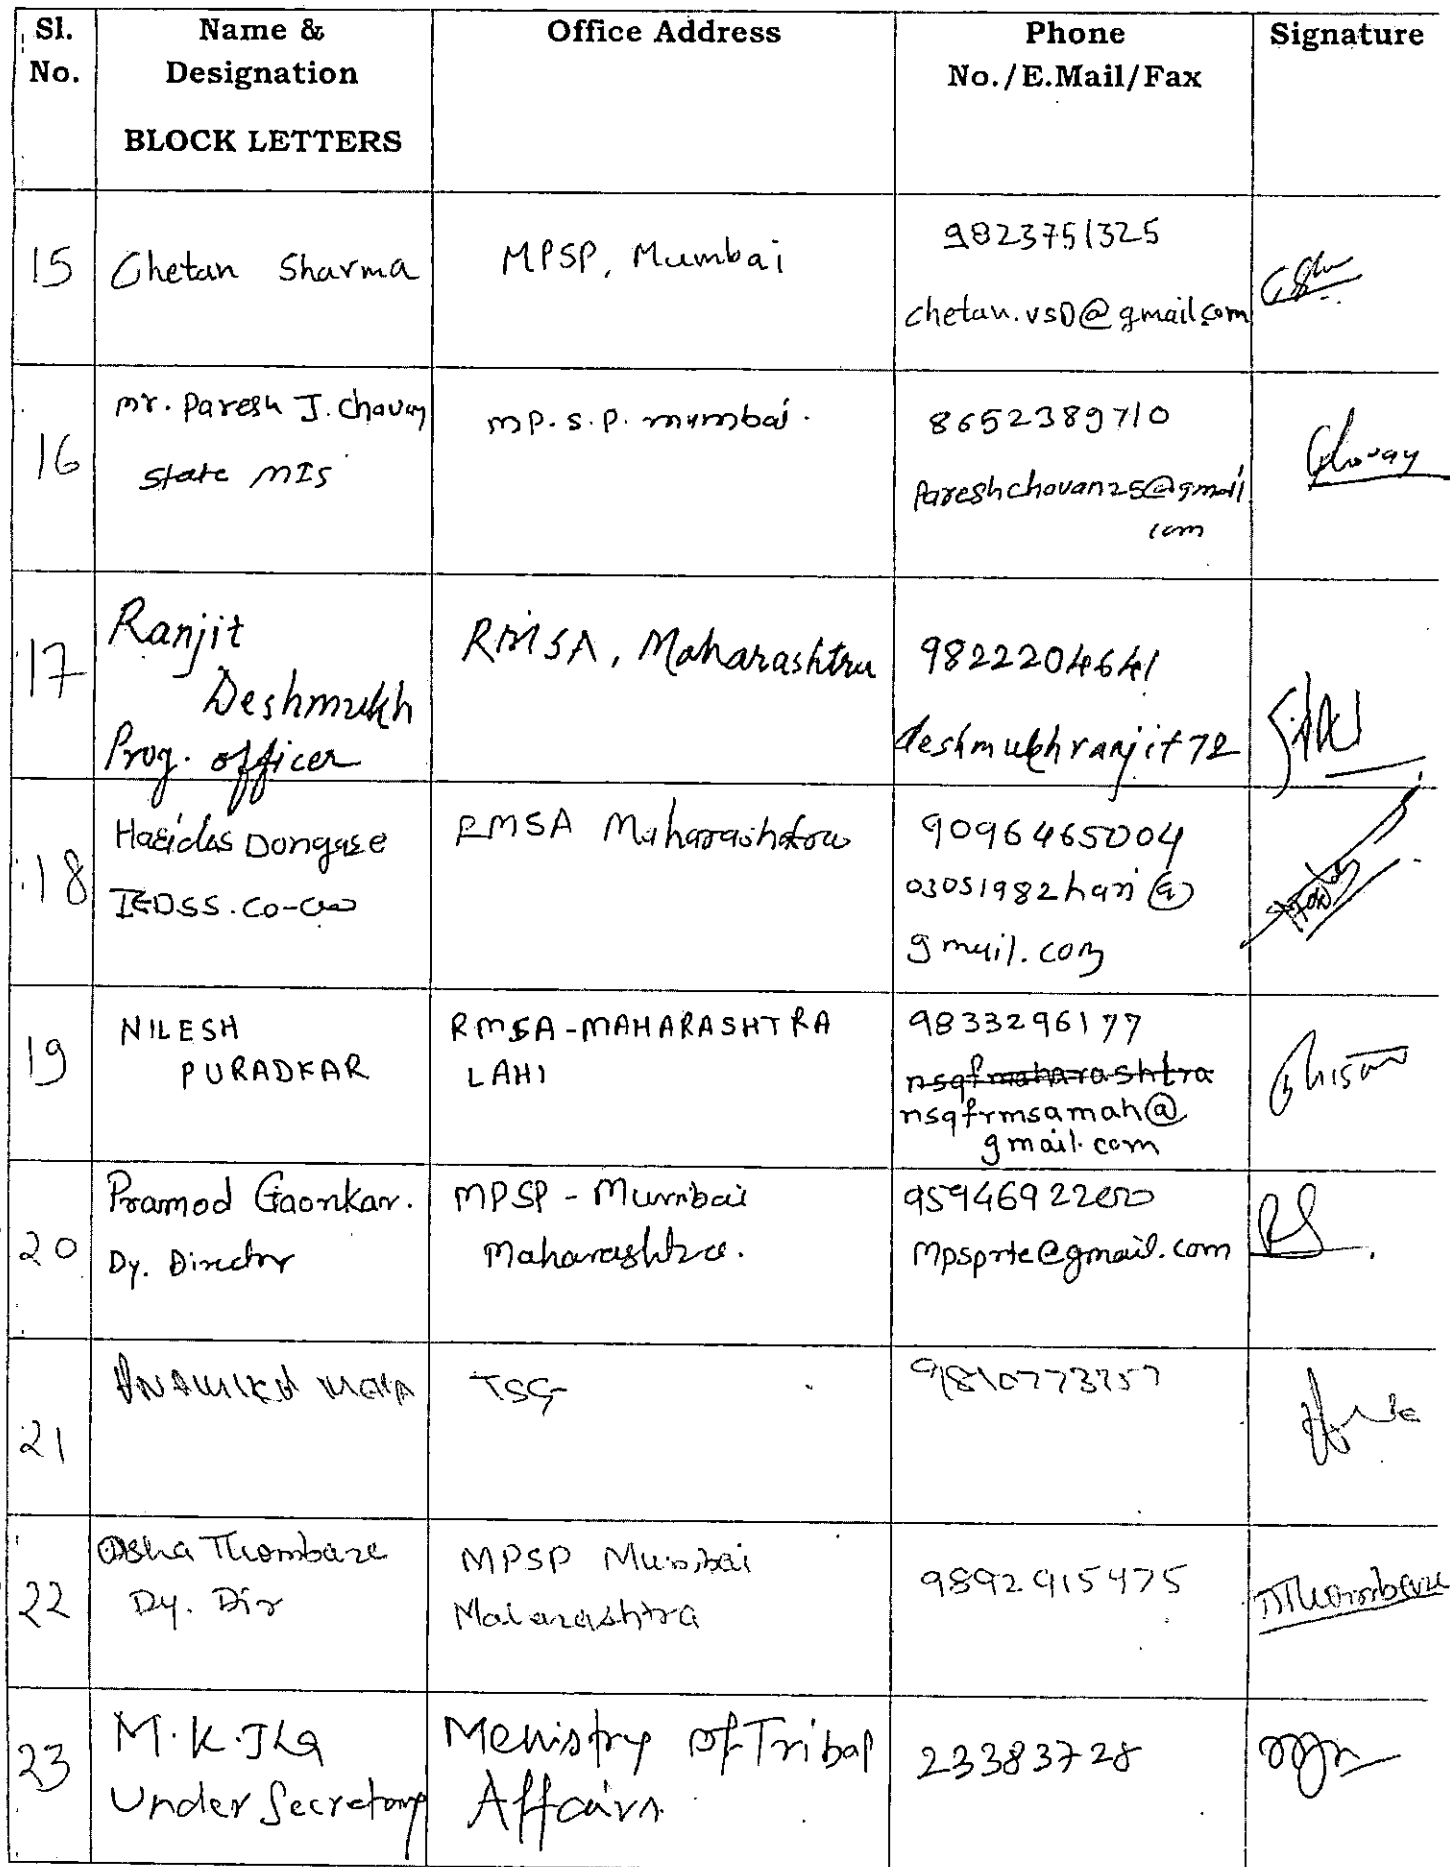 Sl. No.
Name & Designation
BLOCK LETTERS
Office Address
Phone No./E.Mail/Fax
Signature
15
Chetan Sharma
MPSP, Mumbai
9823751325
chetan.vs0@gmail.com
16
mr. Paresh J. Chavan
State MIS
MP.S.P. mumbai.
8652389710
Pareshchovan25@gmail
com
17
Ranjit
Deshmukh
Prog. officer
RMSA, Maharashtra
9822204641
deshmukhranjit72
18
Haridas Dongare
IEDSS. Co-
RMSA Maharashtra
9096465004
03051982hari@
gmail.com
19
NILESH
PURADKAR
RMSA-MAHARASHTRA
LAHI
9833296177
nsqfmaharashtra
nsqfrmsamah@
gmail.com
20
Pramod Gaonkar.
Dy. Director
MPSP - Mumbai
Maharashtra.
9594692200
Mpsprte@gmail.com
21
ANAMIKA
TSG
22
Asha Thombare
Dy. Dir
MPSP Mumbai
Maharashtra
9892915475
Thombare
23
M.K.Jha
Under Secretary
Menistry of Tribal
Affairs
23383728